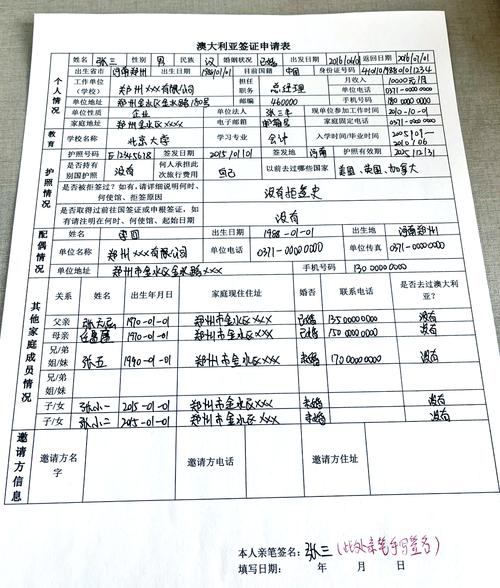 澳大利亚签证申请表
个人情况
姓名 张三 性别 男 民族 汉 婚姻状况 已婚 出发日期 2016/01/01 返回日期 2016/01/01
出生省市 河南郑州 出生日期 1988/01/01 目前国籍 中国 身份证号码
工作单位(学校) 郑州XXX有限公司 担任职务 总经理 月收入 10000元/月
单位电话 0371-0000000
单位地址 郑州金水区金水路180号 邮编 460000 手机号码 180 0000 0000
单位性质 企业 单位法人 张三丰 现单位参加工作时间 2010-10-01
家庭地址 郑州市金水区XXX 电子邮箱 邮箱号 家庭固定电话 0371-0000000
教育
学校名称 北京大学 学习专业 会计 入学时间/毕业时间
护照情况
护照号码 E12345678 签发日期 2015/01/01 签发地 河南 护照有效期 2025/12/31
是否持有别国护照 没有 何人承担此次旅行费用 自己 以前去过哪些国家 美国、英国、加拿大
是否被拒签过?如有,请详细说明何时、何使馆、拒签原因 没有拒签史
是否取得过前往国签证或申根签证,如有请注明在何时、何使馆、起始日期 没有
配偶情况
姓名 李四 出生日期 1988-01-01 出生地 河南郑州
单位名称 郑州XXX有限公司 单位电话 0371-0000000 单位传真 0371-0000000
单位地址 郑州市金水区金水路XXX 手机号码 130 0000 0000
其他家庭成员情况
关系 姓名 出生年月日 家庭现住住址 婚否 联系电话 是否去过澳大利亚?
父亲 1970-01-01 郑州市金水区XXX 已婚 135 0000 0000 没有
母亲 1970-01-01 郑州市金水区XXX 已婚 150 0000 0000 没有
兄/弟 姐/妹 张五 1990-01-01 郑州市金水区XXX 未婚 170 0000 0000 没有
兄/弟 姐/妹
子/女 张小一 2015-01-01 郑州市金水区XXX 未婚 没有
子/女 张小二 2015-01-01 郑州市金水区XXX 未婚 没有
邀请方信息
邀请方名字 邀请方电话 邀请方住址
本人亲笔签名:张三(此处亲笔手写签名)
填写日期: 年 月 日